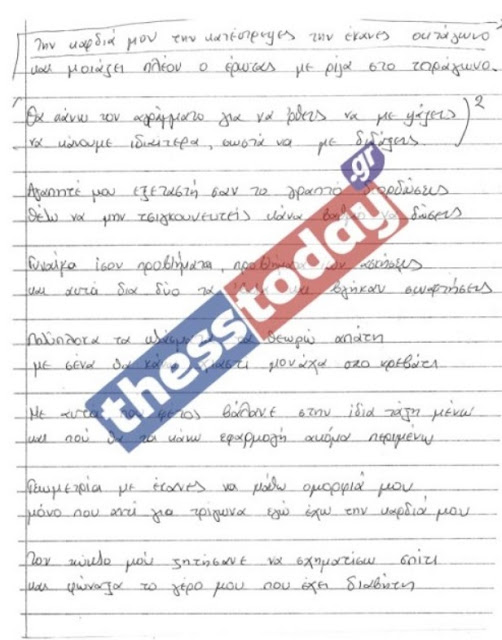 Την καρδιά μου την κατέστρεψες την έκανες οκτάγωνο
και μοιάζει πλέον ο έρωτας με ρίζα στο τετράγωνο.
Θα κάνω τον αγράμματο για να ρθεις να με ψάξεις
να κάνουμε ιδιαίτερα, σωστά να με διδάξεις )²
Αγαπητέ μου εξεταστή σαν το γραπτό διορθώσεις
θέλω να μην τσιγκουνευτείς κάνα βαθμό να δώσεις
Γυναίκα ίσον προβλήματα, προβλήματα ασκήσεις
και αυτά δια δύο τα και βγήκαν συναρτήσεις
Πολύπλοκα τα κλάσματα θεωρώ απάτη
με σένα θα μονάχα στο κρεβάτι
Με αυτά που φέτος βάλανε στην ίδια τάξη μένω
και πού θα τα κάνω εφαρμογή ακόμα περιμένω
Γεωμετρία με έκανες να μάθω ομορφιά μου
μόνο που αντί για τρίγωνα εγώ έχω την καρδιά μου
Τον κύκλο μού ζητήσανε να σχηματίσω σπίτι
και φώναξα το γέρο μου που έχει διαβήτη
thesstoday.gr